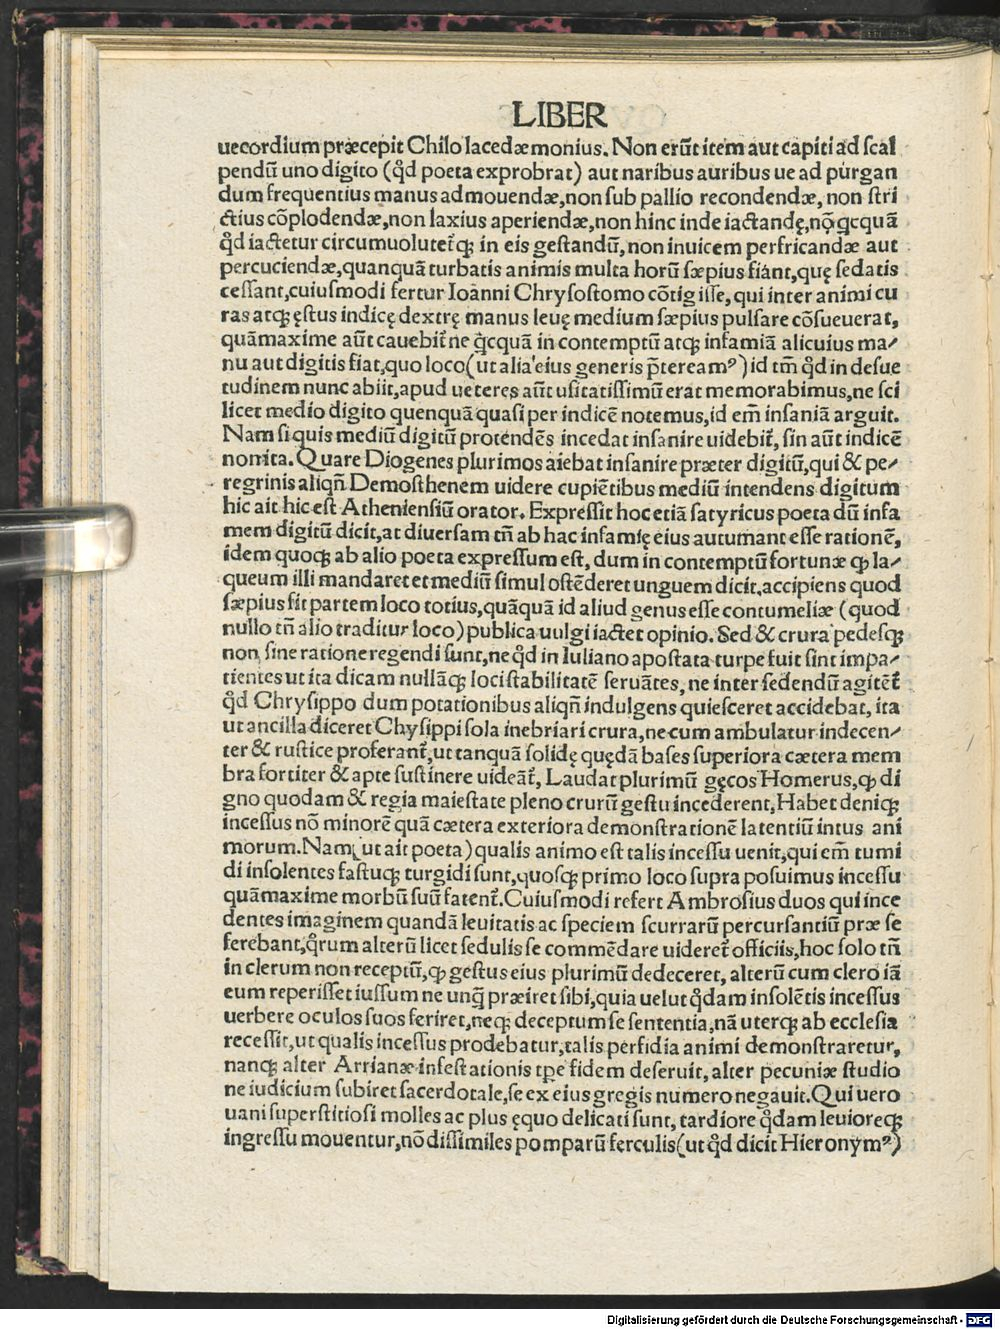 LIBER
uecordium præcepit Chilo lacedæmonius. Non erūt item aut capiti ad scal
pendū uno digito (qd̛ poeta exprobrat) aut naribus auribus ue ad purgan
dum frequentius manus admouendæ, non sub pallio recondendæ, non stri
ctius cōplodendæ, non laxius aperiendæ, non hinc inde iactandę, nō qcquã
qd̛ iactetur circumuolutet̛ꝗ in eis gestandū, non inuicem perfricandæ aut
percuciendæ, quanquã turbatis animis multa horū sæpius fiant, quę sedatis
cessant, cuiusmodi fertur Ioanni Chrysostomo cōtigisse, qui inter animi cu
ras atqȝ ęstus indicę dextrę manus leuę medium sæpius pulsare cōsueuerat,
quãmaxime aūt cauebit̛ ne qcquã in contemptū atqȝ infamiã alicuius ma⸗
nu aut digitis fiat, quo loco (ut alia eius generis p̄teream⁹) id tm̄ qd̛ in desue
tudinem nunc abiit, apud ueteres aūt usitatissimū erat memorabimus, ne sci
licet medio digito quenquã quasi per indicē notemus, id em̄ insaniã arguit.
Nam si quis mediū digitū protendēs incedat insanire uidebit̛, sin aūt indicē
non ita. Quare Diogenes plurimos aiebat insanire præter digitū, qui & pe⸗
regrinis aliqn̄ Demosthenem uidere cupiētibus mediū intendens digitum
hic ait hic est Atheniensiū orator. Expressit hoc etiã satyricus poeta dū infa
mem digitū dicit, at diuersam tn̄ ab hac infamię eius autumant esse rationē,
idem quoqȝ ab alio poeta expressum est, dum in contemptū fortunæ ꝙ la⸗
queum illi mandaret et mediū simul ostēderet unguem dicit, accipiens quod
sæpius fit partem loco totius, quãquã id aliud genus esse contumeliæ (quod
nullo tn̄ alio traditur loco) publica uulgi iactet opinio. Sed & crura pedesqȝ
non sine ratione regendi sunt, ne qd̛ in Iuliano apostata turpe fuit sint impa⸗
tientes ut ita dicam nullãqȝ loci stabilitatē seruātes, ne inter sedendū agitēt̛
qd̛ Chrysippo dum potationibus aliqn̄ indulgens quiesceret accidebat, ita
ut ancilla diceret Chysippi sola inebriari crura, ne cum ambulatur indecen⸗
ter & rustice proferant̛, ut tanquã solidę quędã bases superiora cætera mem
bra fortiter & apte sustinere uideãt̛, Laudat plurimū gęcos Homerus, ꝙ di
gno quodam & regia maiestate pleno crurū gestu incederent, Habet deniqȝ
incessus nō minorē quã cætera exteriora demonstrationē latentiū intus ani
morum. Nam (ut ait poeta) qualis animo est talis incessu uenit, qui em̄ tumi
di insolentes fastuqȝ turgidi sunt, quosqȝ primo loco supra posuimus incessu
quãmaxime morbū suū fatent̛. Cuiusmodi refert Ambrosius duos qui ince
dentes imaginem quandã leuitatis ac speciem scurrarū percursantiū præ se
ferebant, qrum alterū licet sedulis se commēdare uideret̛ officiis, hoc solo tn̄
in clerum non receptū, ꝙ gestus eius plurimū dedeceret, alterū cum clero iã
eum reperisset iussum ne unq̄ præiret sibi, quia uelut qd̛am insolētis incessus
uerbere oculos suos feriret, neqȝ deceptum se sententia, nã uterqȝ ab ecclesia
recessit, ut qualis incessus prodebatur, talis perfidia animi demonstraretur,
nanqȝ alter Arrianæ infestationis tp̄e fidem deseruit, alter pecuniæ studio
ne iudicium subiret sacerdotale, se ex eius gregis numero negauit. Qui uero
uani superstitiosi molles ac plus ęquo delicati sunt, tardiore qd̛am leuioreqȝ
ingressu mouentur, nō dissimiles pomparū ferculis (ut qd̛ dicit Hieronym⁹)
Digitalisierung gefördert durch die Deutsche Forschungsgemeinschaft - DFG